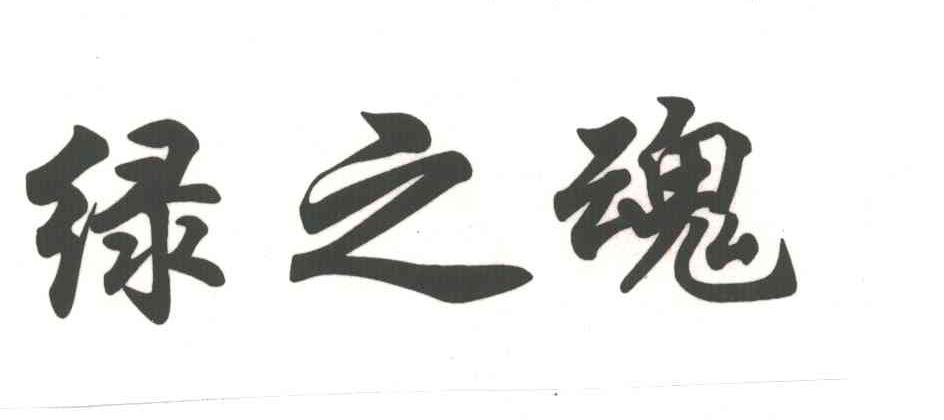 绿之魂